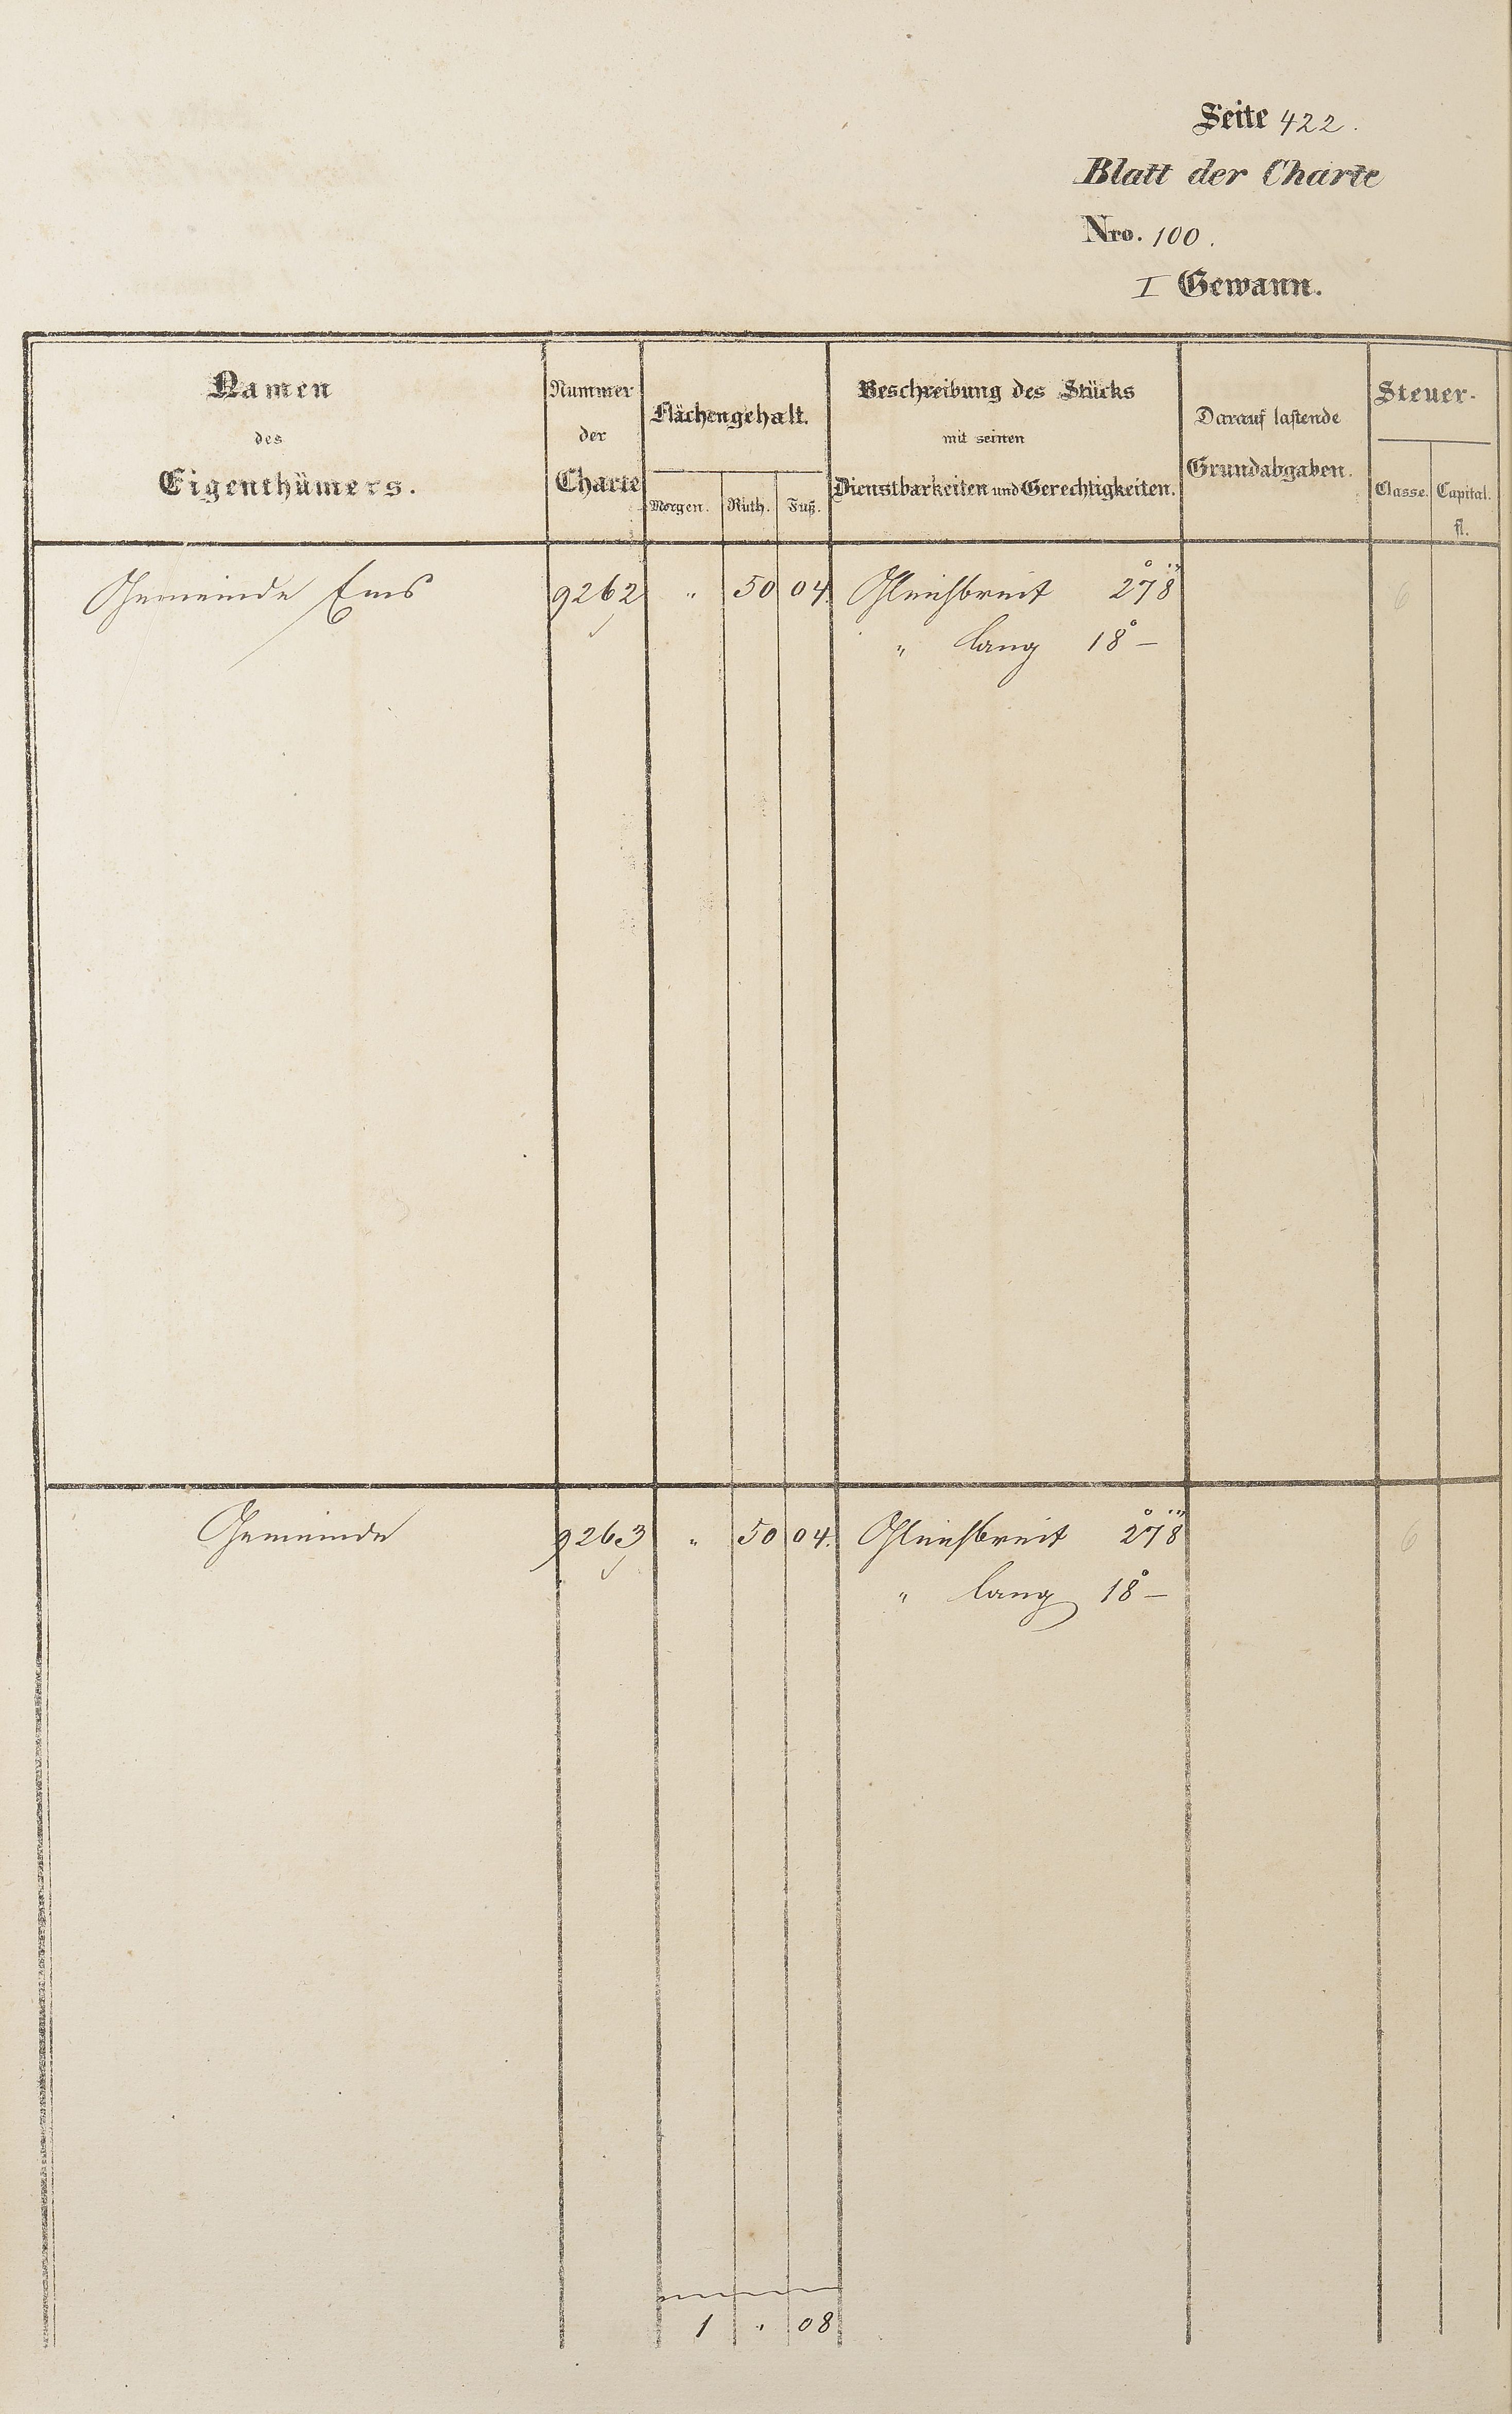 Seite 422.
Blatt der Charte
Nro. 100.
I Gewann.
Namen
des
Eigenthümers.
Nummer
der
Charte
Flächengehalt.
Morgen. Ruth. Fuß.
Beschreibung des Stücks
mit seinen
Dienstbarkeiten und Gerechtigkeiten.
Darauf lastende
Grundabgaben.
Steuer-
Classe. Capital.
fl.
Gemeinde Ems 9262 " 50 04. Gleichbreit 2° 7 8‴ 6
" lang 18° –
Gemeinde 9263 " 50 04. Gleichbreit 2° 7 8‴ 6
" lang 18° –
1 " 08